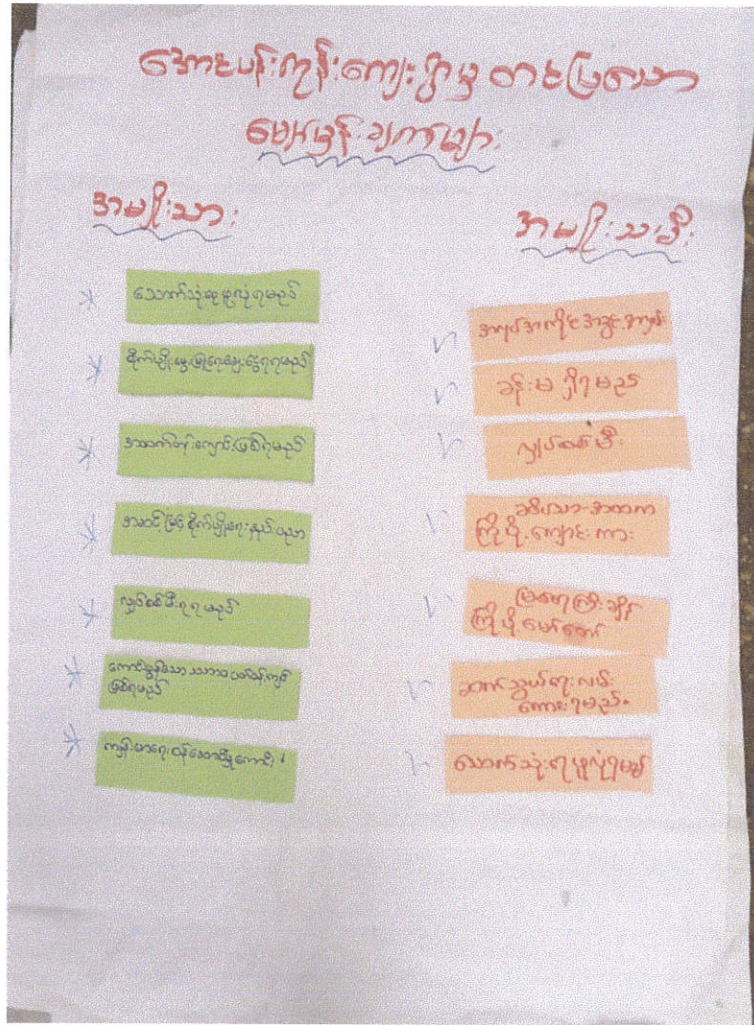 အောင်ပန်းကုန်းကျေးရွာမှ တင်ပြသော
မျှော်မှန်းချက်များ
အမျိုးသား
သောက်သုံးရေဖူလုံရမည်
စိုက်ပျိုးမွေးမြူရေးချေးငွေရရမည်
အထက်တန်းကျောင်းဖြစ်ရမည်
အဆင့်မြင့်စိုက်ပျိုးရေးနည်းပညာ
လျှပ်စစ်မီးရရမည်
ကောင်းမွန်သော သဘာဝပတ်ဝန်းကျင်
ဖြစ်ရမည်
ကျန်းမာရေးဝန်ဆောင်မှုကောင်း
အမျိုးသမီး
အလုပ်အကိုင်အခွင့်အလမ်း
ခန်းမ ရှိရမည်
လျှပ်စစ်မီး
ကြိုပို့ကျောင်းကား
ကြိုပို့မော်တော်
ဆက်သွယ်ရေးလမ်း
ကောင်းရမည်။
သောက်သုံးရေဖူလုံရမည်